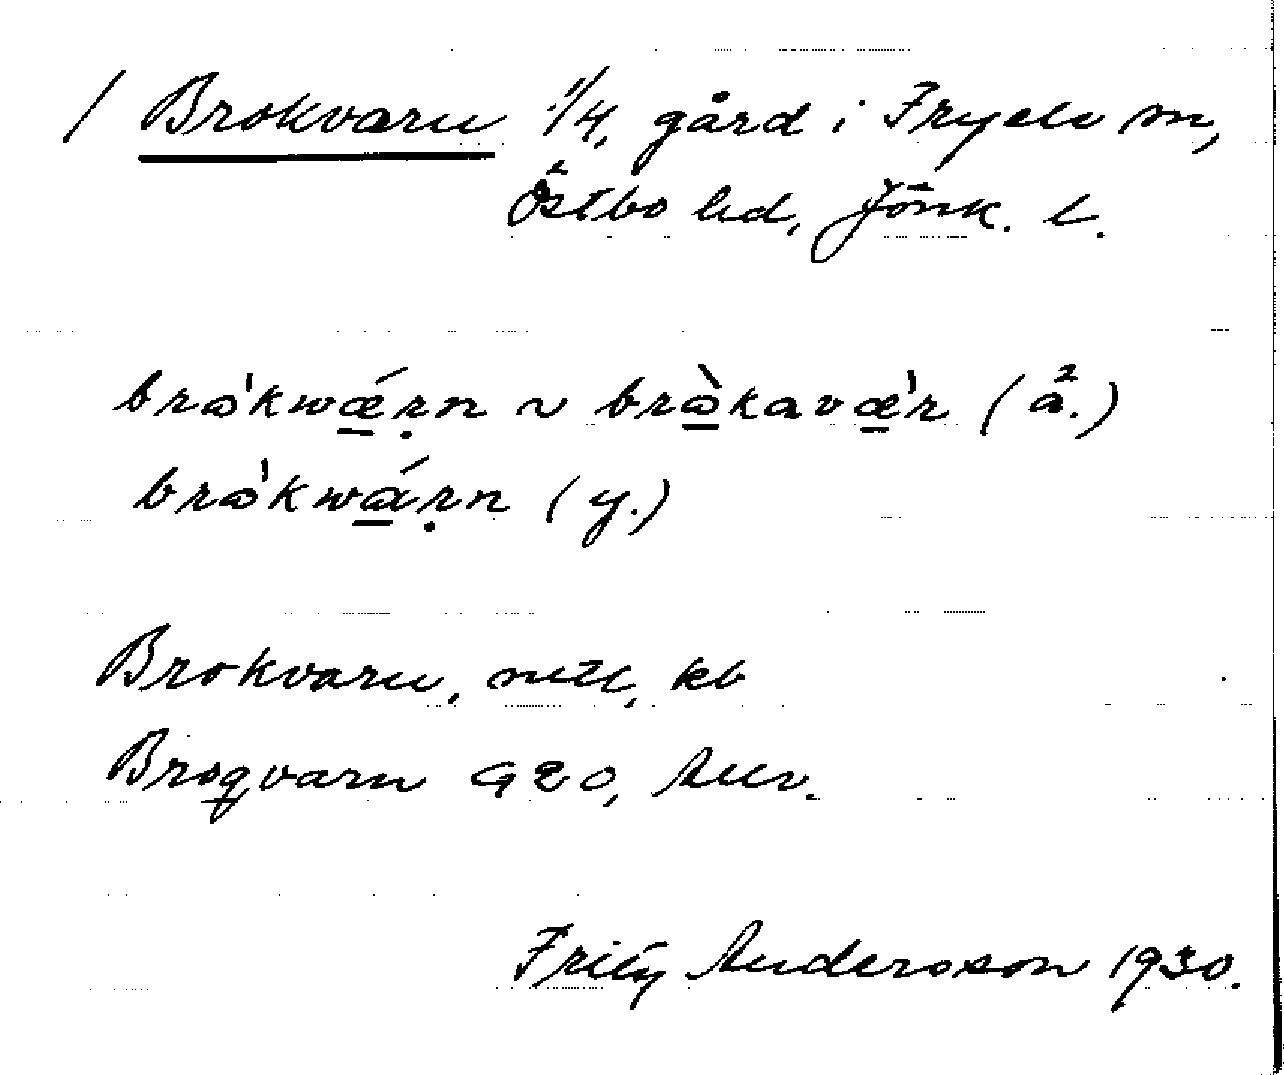 / Brokvarn 1/4, gård i Fryele sn,
Östbo hd, Jönk. l.
bra'kwǽṛn ~ bràkavæ'r (ä.)
bra'kwáṛn (y.)
Brokvarn, mtl, kb
Broqvarn GEO, Auv.
Fritz Andersson 1930.